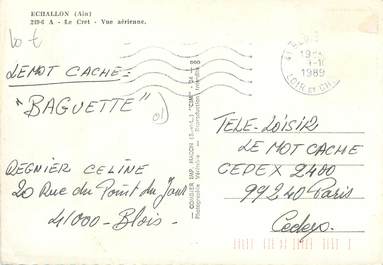 ECHALLON (Ain)
219-6 A - Le Cret - Vue aérienne.
10 €
LE MOT CACHE =
"BAGUETTE"
REGNIER CELINE
20 Rue du Point du Jour
41000 - Blois -
COMBIER IMP. MACON (S.-&-L.) "CIM"
Photographie Véritable - Reproduction Interdite
1989
LOIR ET CH.
TELE-LOISIR
LE MOT CACHE
CEDEX 2480
99240 Paris
Cedex